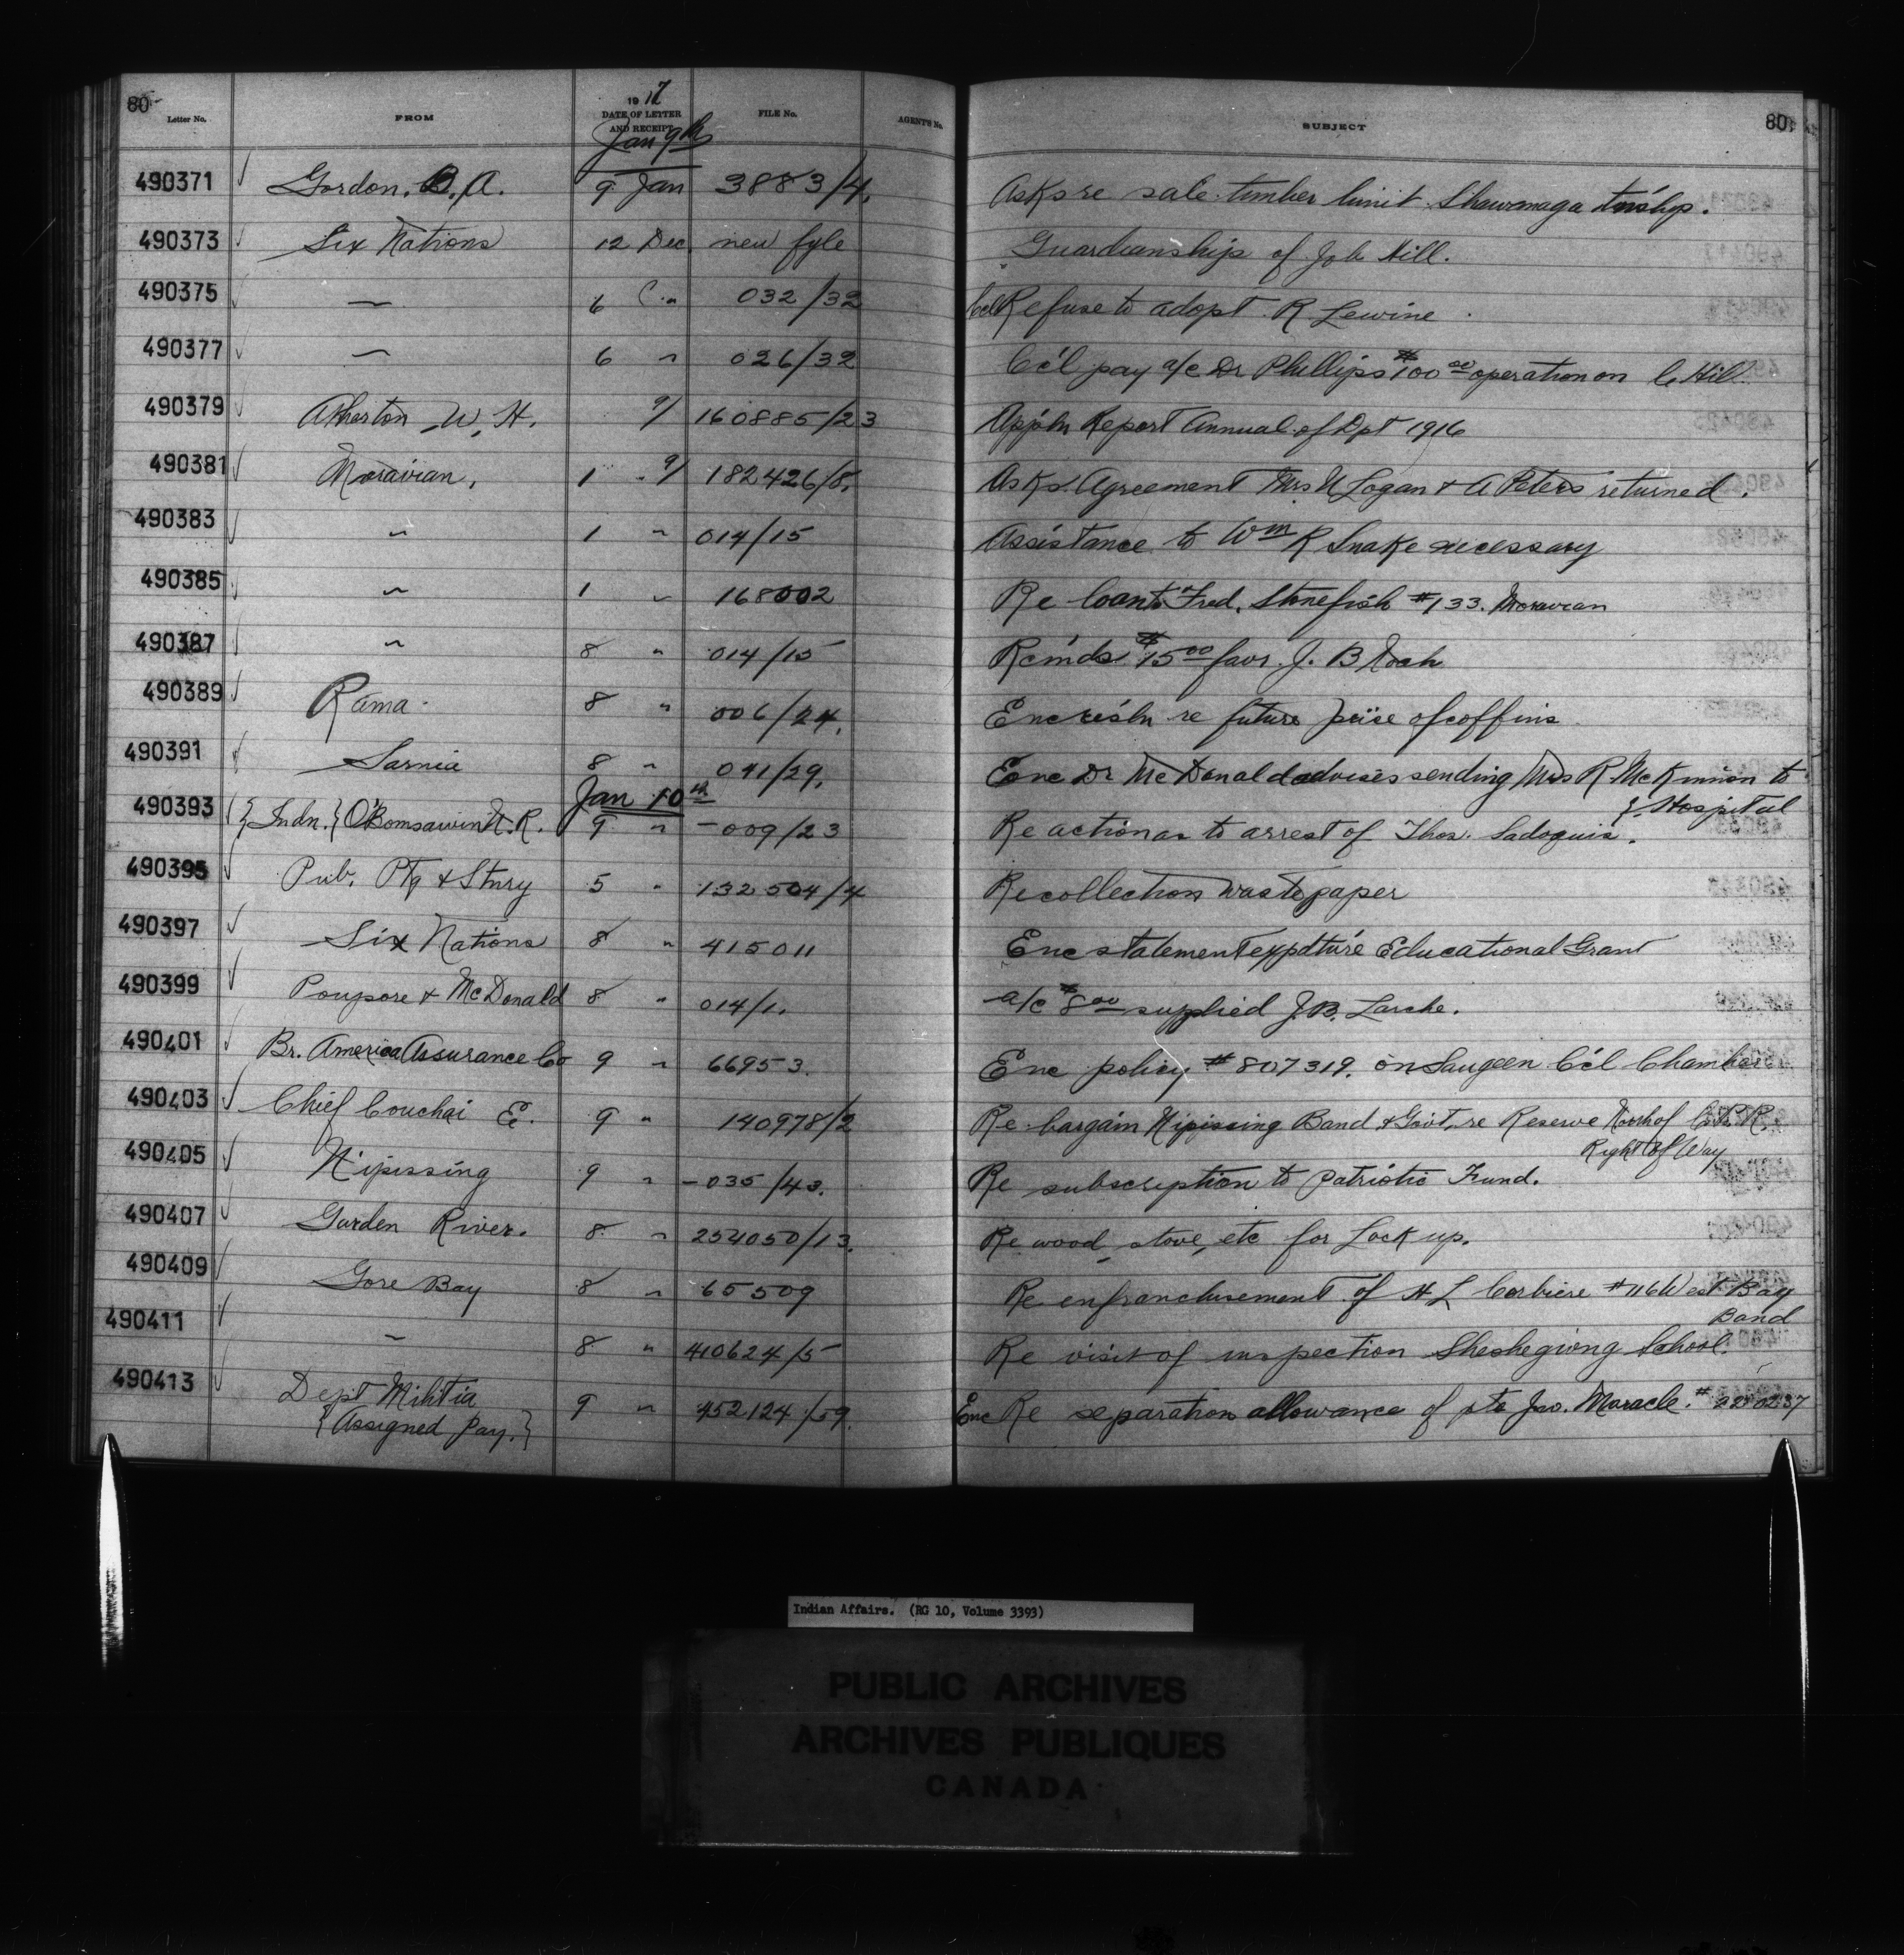 80 80
Letter No. FROM 1917 DATE OF LETTER AND RECEIPT FILE No. AGENT'S No. SUBJECT
Jan 9th
490371 Gordon. B. A. 9 Jan 3883/4. Asks re sale timber limit Shawanaga tn'ship.
490373 Six Nations 12 Dec. new fyle Guardianship of Job Hill.
490375 〃 6 〃 032/32 Cc'l Refuse to adopt R Lewine
490377 〃 6 〃 026/32 Cc'l pay a/c Dr Phillips $100 00 operation on C. Hill
490379 Atherton W. H. 9/ 160885/23 App'ln Report Annual of Dpt 1916
490381 Moravian, 1 9/ 182426/8. Asks Agreement Mrs N Logan & A Peters returned.
490383 〃 1 〃 014/15 Assistance to Wm R Snake necessary
490385 〃 1 〃 168002 Re loan to Fred. Stonefish #133. Moravian
490387 〃 8 〃 014/15 Rem'ds $15 00 favr. J. B Noah
490389 Rama 8 〃 006/24. Enc res'ln re future price of coffins
490391 Sarnia 8 〃 041/29. Enc Dr McDonald advises sending Mrs R. McKinnon to
Hospital
Jan 10th
490393 {Indn.} O'Bomsawin N. R. 9 〃 -009/23 Re action as to arrest of Thos. Sadoquis.
490395 Pub. Ptg & Stnry 5 〃 132504/4 Re collection waste paper
490397 Six Nations 8 〃 415011 Enc statement expdture Educational Grant
490399 Poupore & McDonald 8 〃 014/1. a/c $8 00 supplied J.B. Larche.
490401 Br. America Assurance Co 9 〃 66953. Enc policy #807319. on Saugeen Cc'l Chamber
490403 Chief Couchai E. 9 〃 140978/2 Re bargain Nipissing Band & Govt. re Reserve North of C.P.R.
Right of Way
490405 Nipissing 9 〃 -035/43. Re subscription to Patriotic Fund.
490407 Garden River. 8 〃 254050/13. Re wood, stove, etc for Lock up.
490409 Gore Bay 8 〃 65509 Re enfranchisement of H L Corbiere #116 West Bay
Band
490411 〃 8 〃 410624/5 Re visit of inspection Sheshegwong School.
490413 Dept Militia 9 〃 452124/59. Enc Re separation allowance of pte Jno. Maracle.
{Assigned Pay.}
Indian Affairs. (RG 10, Volume 3393)
PUBLIC ARCHIVES
ARCHIVES PUBLIQUES
CANADA